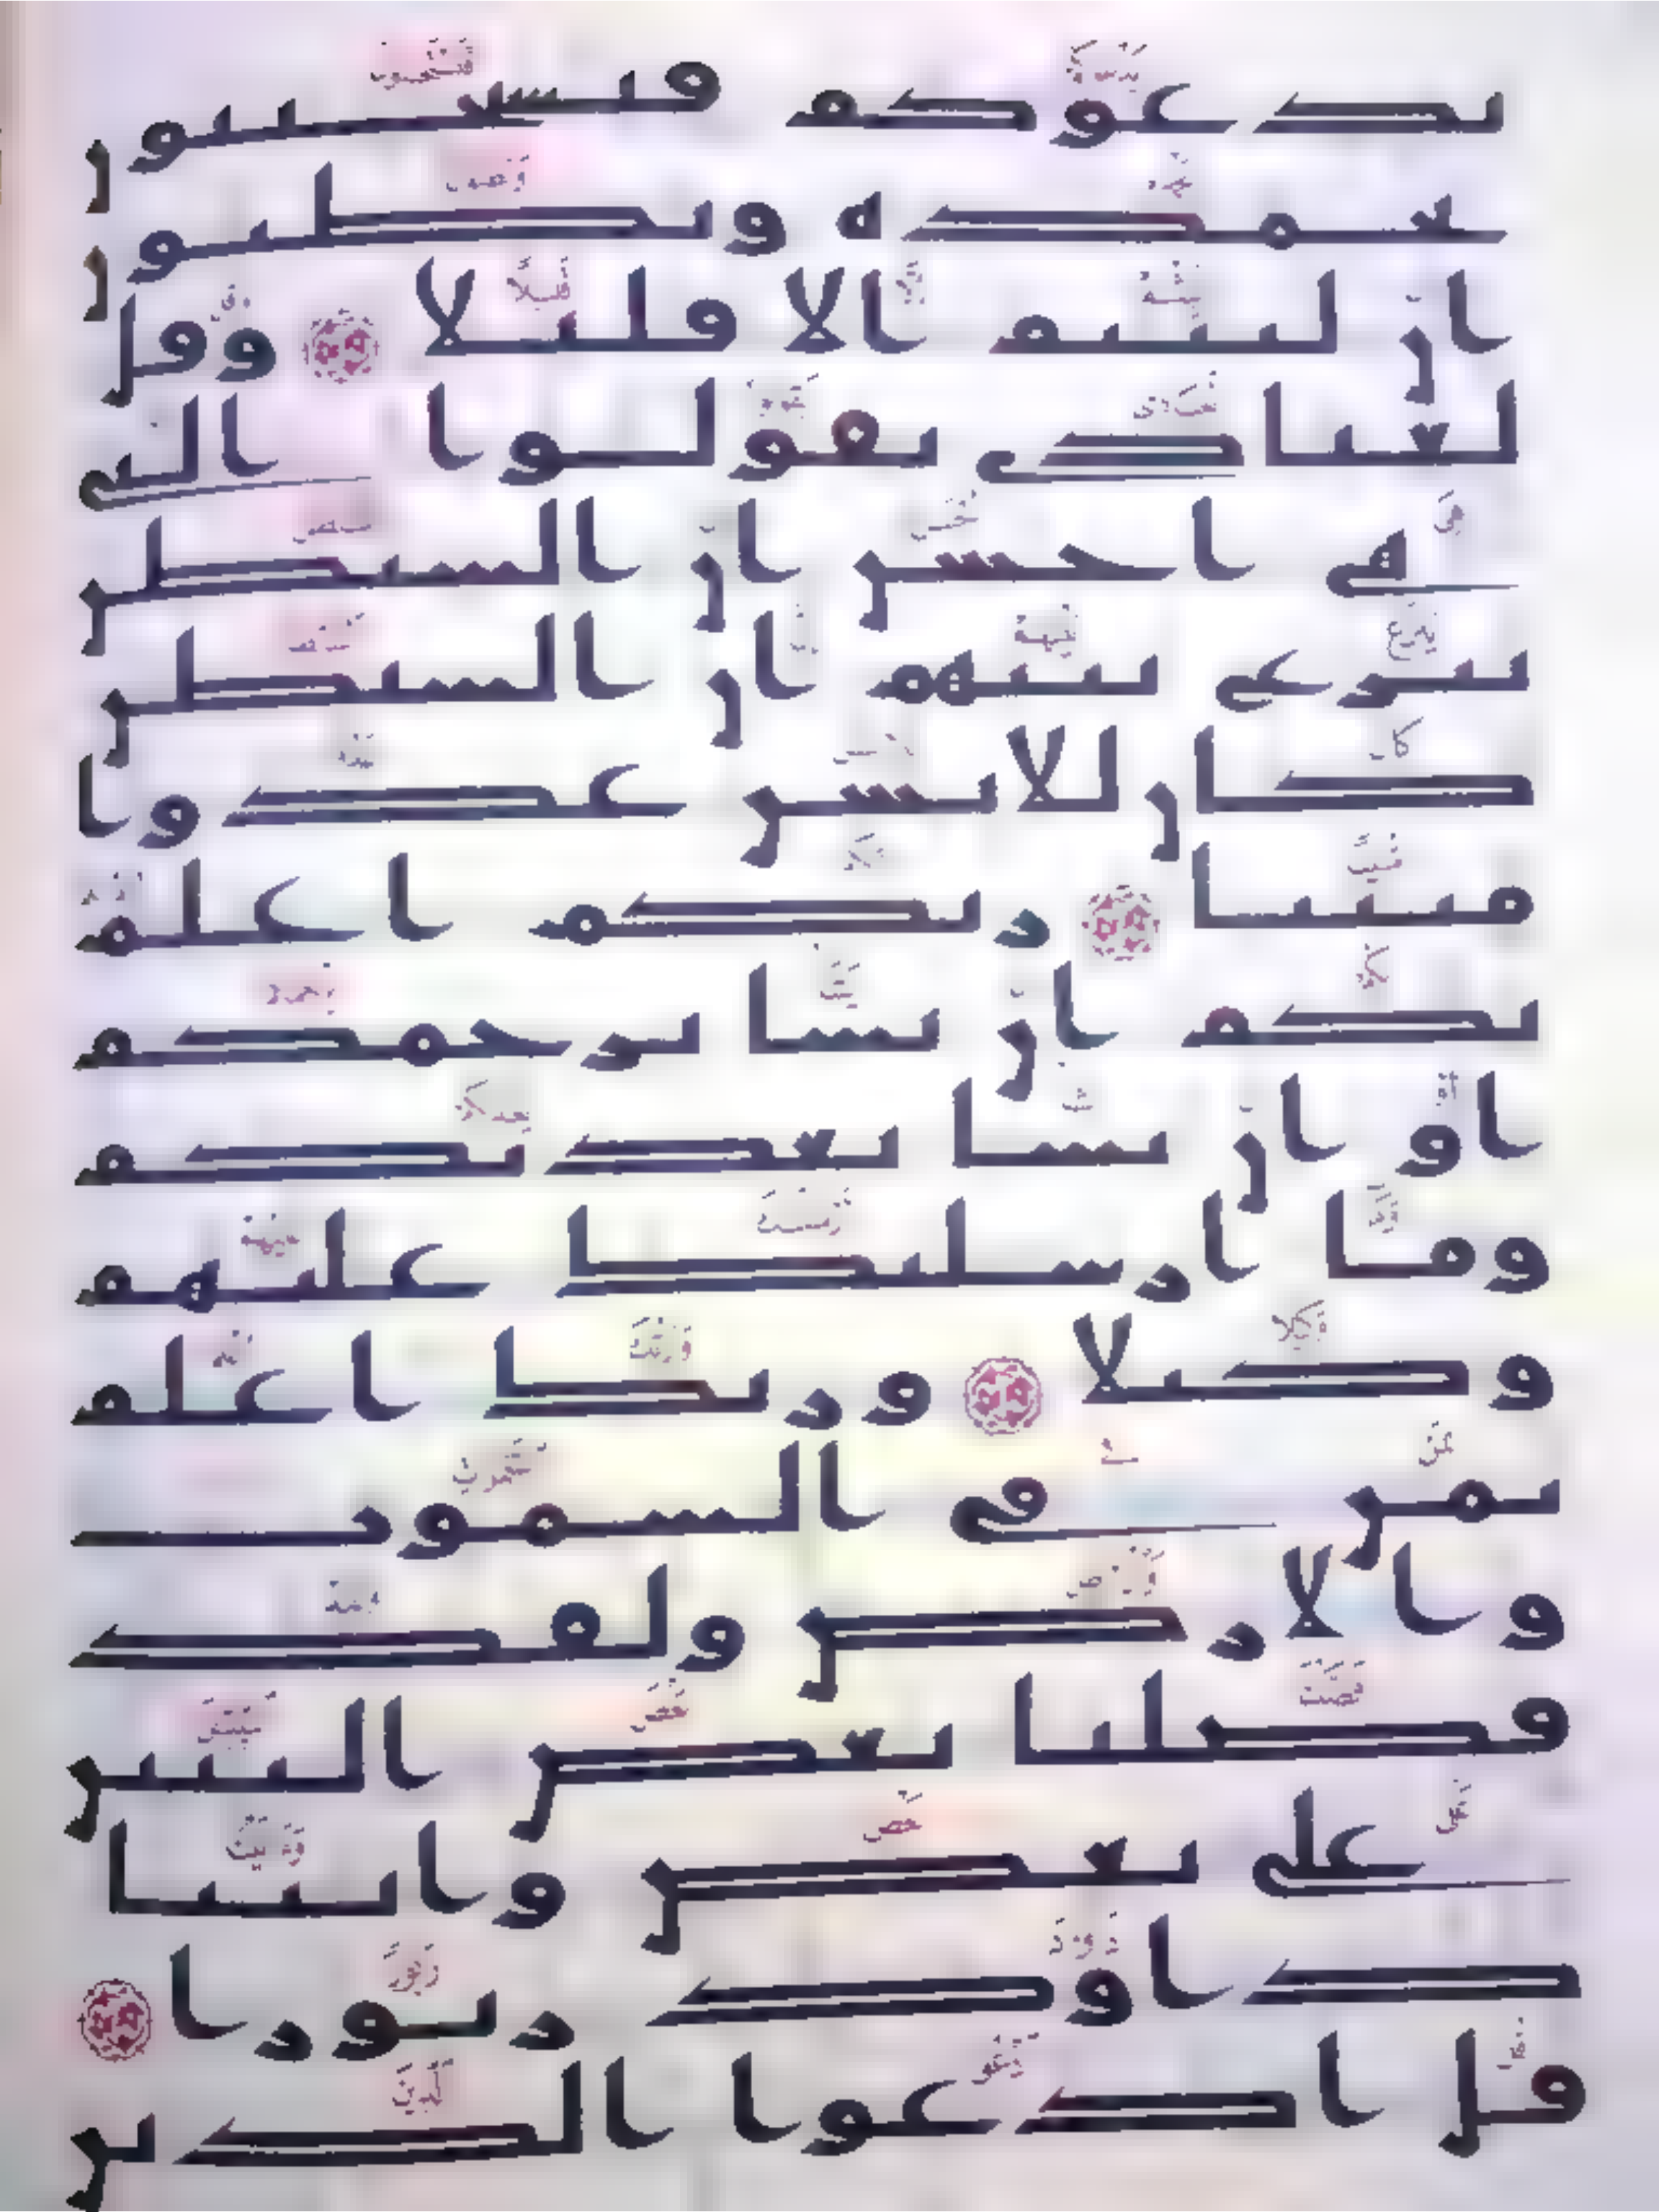 يدعوكم فتستجيبون
بحمده وتظنون
ان لبثتم الا قليلا وقل
لعبادي يقولوا التي
هي احسن ان الشيطن
ينزغ بينهم ان الشيطن
كان للانسن عدوا
مبينا ربكم اعلم
بكم ان يشا يرحمكم
او ان يشا يعذبكم
وما ارسلنك عليهم
وكيلا وربك اعلم
بمن في السموت
والارض ولقد
فضلنا بعض النبين
على بعض واتينا
داود زبورا
قل ادعوا الذين